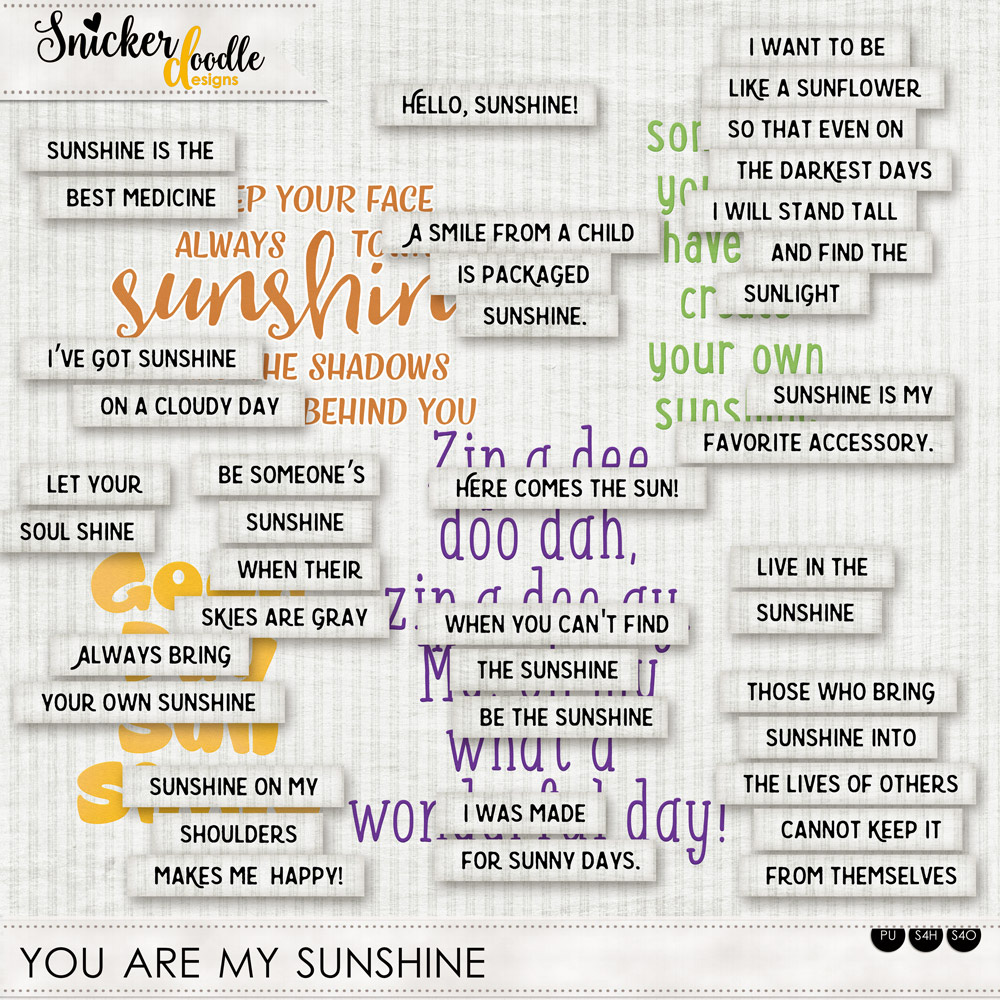 Snicker
doodle
esigns
HELLO, SUNSHINE!
I WANT TO BE
LIKE A SUNFLOWER
SO THAT EVEN ON
THE DARKEST DAYS
I WILL STAND TALL
AND FIND THE
SUNLIGHT
SUNSHINE IS THE
BEST MEDICINE
YOUR FACE
ALWAYS
A SMILE FROM A CHILD
IS PACKAGED
SUNSHINE.
have
your own
SHADOWS
BEHIND YOU
I'VE GOT SUNSHINE
ON A CLOUDY DAY
SUNSHINE IS MY
FAVORITE ACCESSORY.
LET YOUR
SOUL SHINE
BE SOMEONE'S
SUNSHINE
WHEN THEIR
SKIES ARE GRAY
Zip a dee
HERE COMES THE SUN!
doo dah,
zip a dee ay
WHEN YOU CAN'T FIND
THE SUNSHINE
BE THE SUNSHINE
what a
day!
LIVE IN THE
SUNSHINE
ALWAYS BRING
YOUR OWN SUNSHINE
SUNSHINE ON MY
SHOULDERS
MAKES ME HAPPY!
I WAS MADE
FOR SUNNY DAYS.
THOSE WHO BRING
SUNSHINE INTO
THE LIVES OF OTHERS
CANNOT KEEP IT
FROM THEMSELVES
YOU ARE MY SUNSHINE
PU S4H S4O